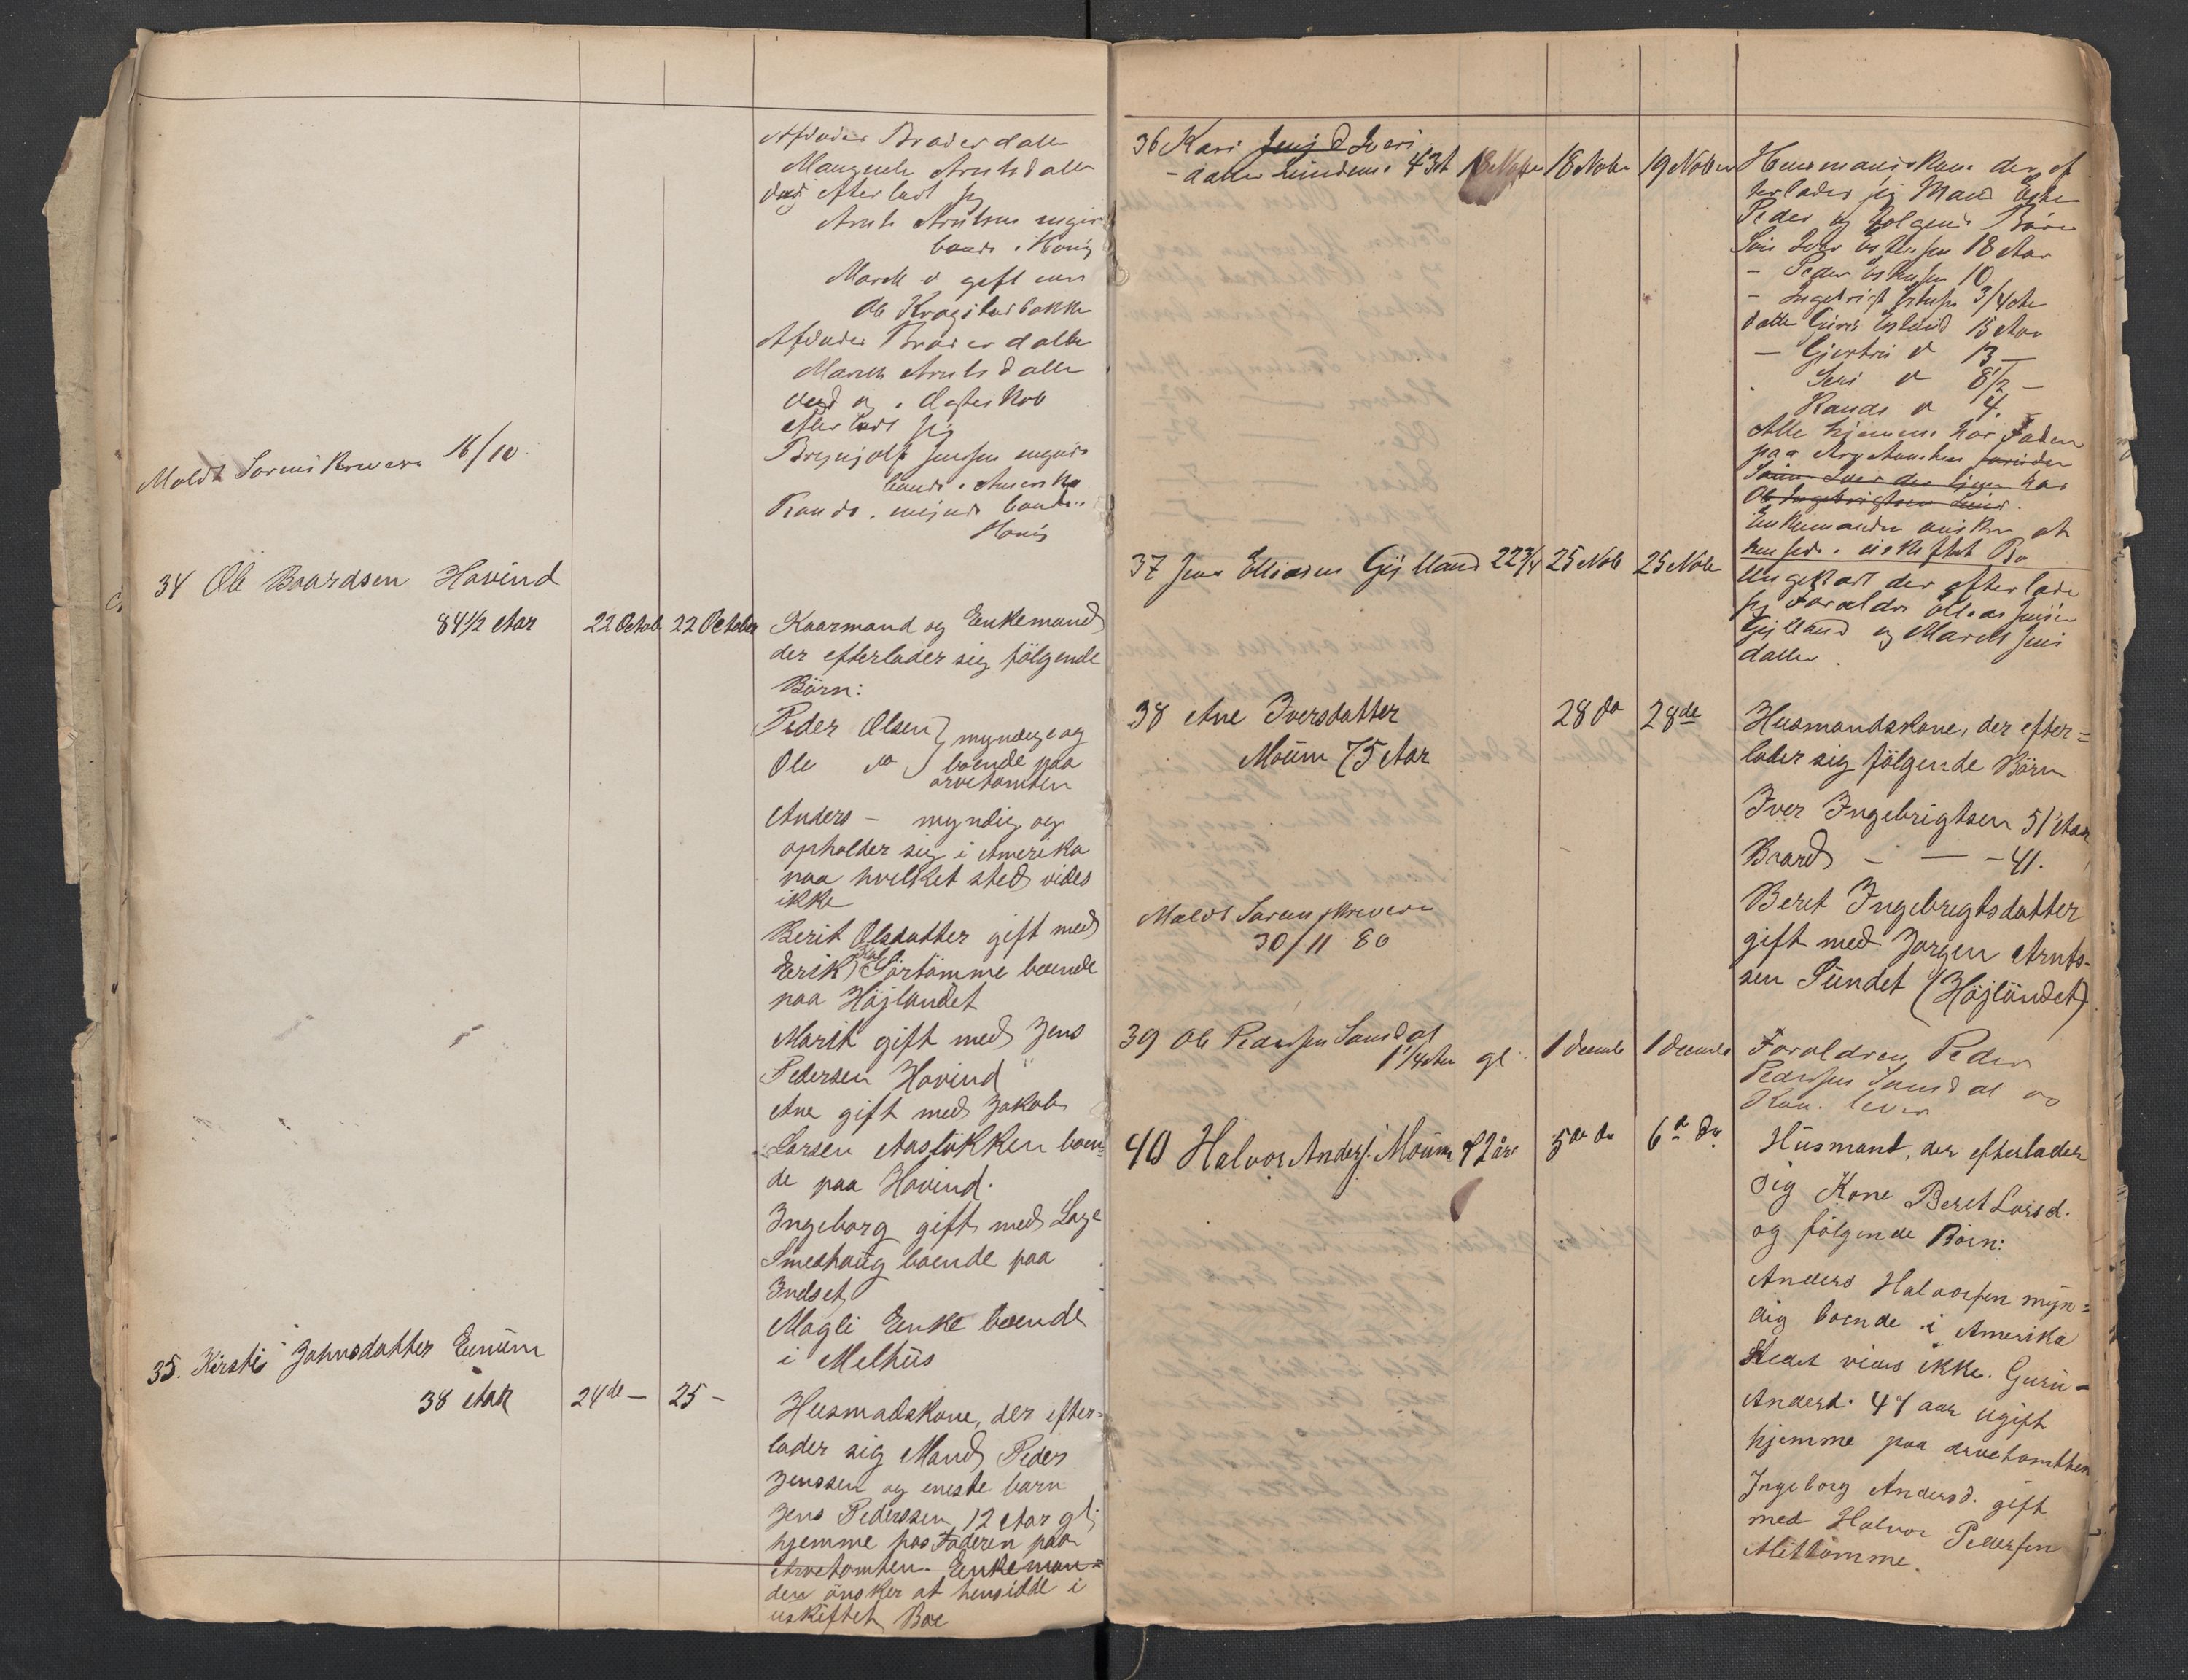 Afdøde Broder datter
Arntsdatter
død efterladt sig
Arnt Arntsen
boende i
Marit d gift med
Ole
Afdøde Broder datter
Marith Arntsdatter
død og i Ægteskab
efterladt sig
Brynjolf Jensen myndig
boende i Amerika
Randi, myndig boende i
Meldt Sorenskriveren 16/10
34 Ole Baardsen Havind
84 1/2 Aar 22 Octob 22 October Kaarmand og Enkemand
der efterlader sig følgende
Børn:
Peder Olsen } myndige og
Ole do } boende paa
arvetomten
Anders – myndig og
opholder sig i Amerika
paa hvilket sted vides
ikke
Berit Olsdatter gift med
Erik Sørtømme boende
paa Højlandet
Marit gift med Jens
Pedersen Havind
Ane gift med Jakob
Larsen Aasløkken boen=
de paa Havind.
Ingeborg gift med Lage
Smedhaug boende paa
Indset
Magli Enke boende
i Melhus
35. Kirsti Johnsdatter Enum
38 Aar 24de – 25 – Husmadskone, der efter=
lader sig Mand Peder
Jenssen og eneste barn
Jens Pederssen, 12 Aar gl;
hjemme hos Faderen paa
Arvetomten. Enkeman=
den ønsker at hensidde i
uskiftet Boe
36 Kari Jensd Ivers
-datter 43 A 18 Novbr 18 Novbr 19 Novbr Husmandskone der ef
terlader sig Mand
Peder og følgende Børn
Søn Iver Estensen 18 Aar
– Peder Estensen 10
– Ingebrigt Estensen 3/4 Aar
datter Guru Estensd 15 Aar
– Gjertru d 13 –
Seri d 8 1/2 –
Randi d 4.
Alle hjemme hos Faderen
paa Arvetomten
Sønn Iver der tjener hos
Ole Ingebrigtsen
Enkemanden ønsker at
hensidde i uskiftet Bo
37 Jens Elliasen Gjylland 22 3/4 25 Novb 25 Novbr Ungkarl der efterlader
sig Foraldre Ellias Jensen
Gjylland og Marit Jens
datter.
38 Ane Iversdatter 28 do 28de Husmandskone, der efter=
Moum 75 Aar lader sig følgende Børn
Iver Ingebrigtsen 51 Aar
Baard – — – 41.
Meldt Sorenskriveren Beret Ingebrigtsdatter
30/11 80 gift med Jørgen Arnts-
sen Sundet (Højlandet)
39 Ole Pedersen Samsdal
1 1/4 Aar gl. 1 Decemb 1 December Foraldren Peder
Pedersen Samsdal og
Kone lever
40 Halvor Anders. Moum 5de do 6te do. Husmand, der efterlader
sig Kone Beret Larsd.
og følgende Børn:
Anders Halvorsen myn=
dig boende i Amerika
Stedet vides ikke. Guru –
Andersd. 47 aar ugift
hjemme paa arvetomthen
Ingeborg Andersd. gift
med Halvor Pedersen
Mittømme.